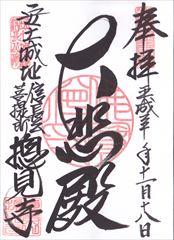 奉拝
平成 年十一月六日
大悲殿
安土城址
信長公菩提所
摠見寺